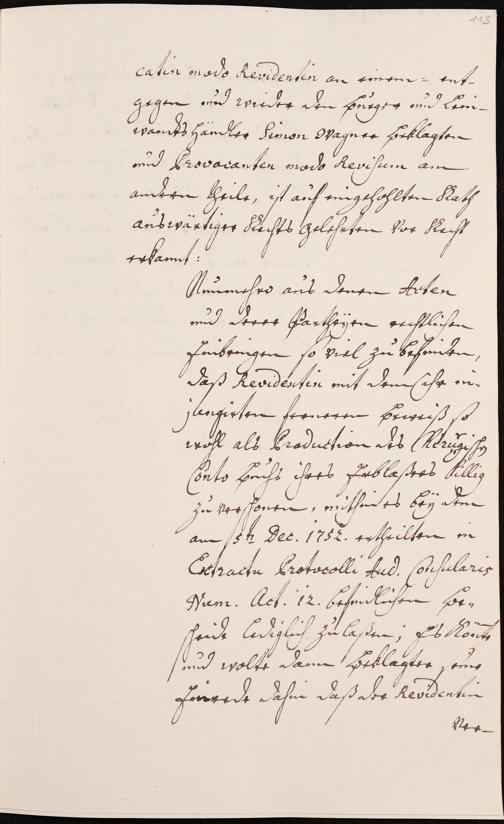 113
catin modo Revidentin an einem- ent-
gegen und wieder den Burger und Lein-
wandts Händler Simon Wagner Beklagten
und Provocanten modo Revisum am
andern Theile, ist auf eingehohlten Rath
auswärtiger Rechts gelehrten vor Recht
erkannt:
Nunmehro aus denen Acten
und derer Partheyen rechtlichen
Einbringen so viel zu befinden,
daß Revidentin mit dem Ihr in-
jungirten ferneren Beweiß so
wohl als Production des
Conto Buchs ihres Erblaßers billig
zu verschonen, mithin es bey dem
am 5t Dec. 1752. ertheilten in
Extractu Protocolli Aud. Consularis
Num. Act. 12. befindlichen Be-
scheide lediglich zu laßen; Es könte
und wolte dann Beklagter seine
Einrede dahin daß der Revidentin
Ver-